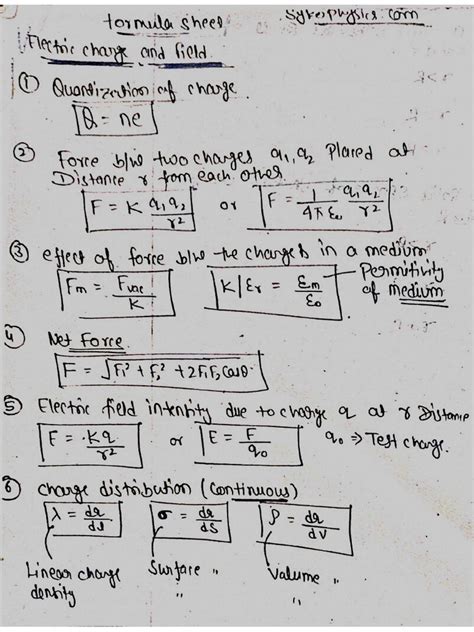 formula sheet
sykesphysics.com
Electric charge and field.
① Quantization of charge
Q = ne
② Force b/w two charges q₁, q₂ Placed at
Distance r from each other
F = K q₁q₂/r² or F = 1/4πε₀ q₁q₂/r²
③ effect of force b/w the charges in a medium
Fm = Fvac/K K|εr = εm/ε₀ Permitivity of medium
④ Net Force
F = √F₁² + F₂² + 2F₁F₂ Cosθ
⑤ Electric field intensity due to charge q at r Distance
E = Kq/r² or E = F/q₀ q₀ ⇒ Test charge.
⑥ charge distribution (continuous)
λ = dq/dl σ = dq/ds ρ = dq/dV
Linear charge density Surface „ „ Volume „ „